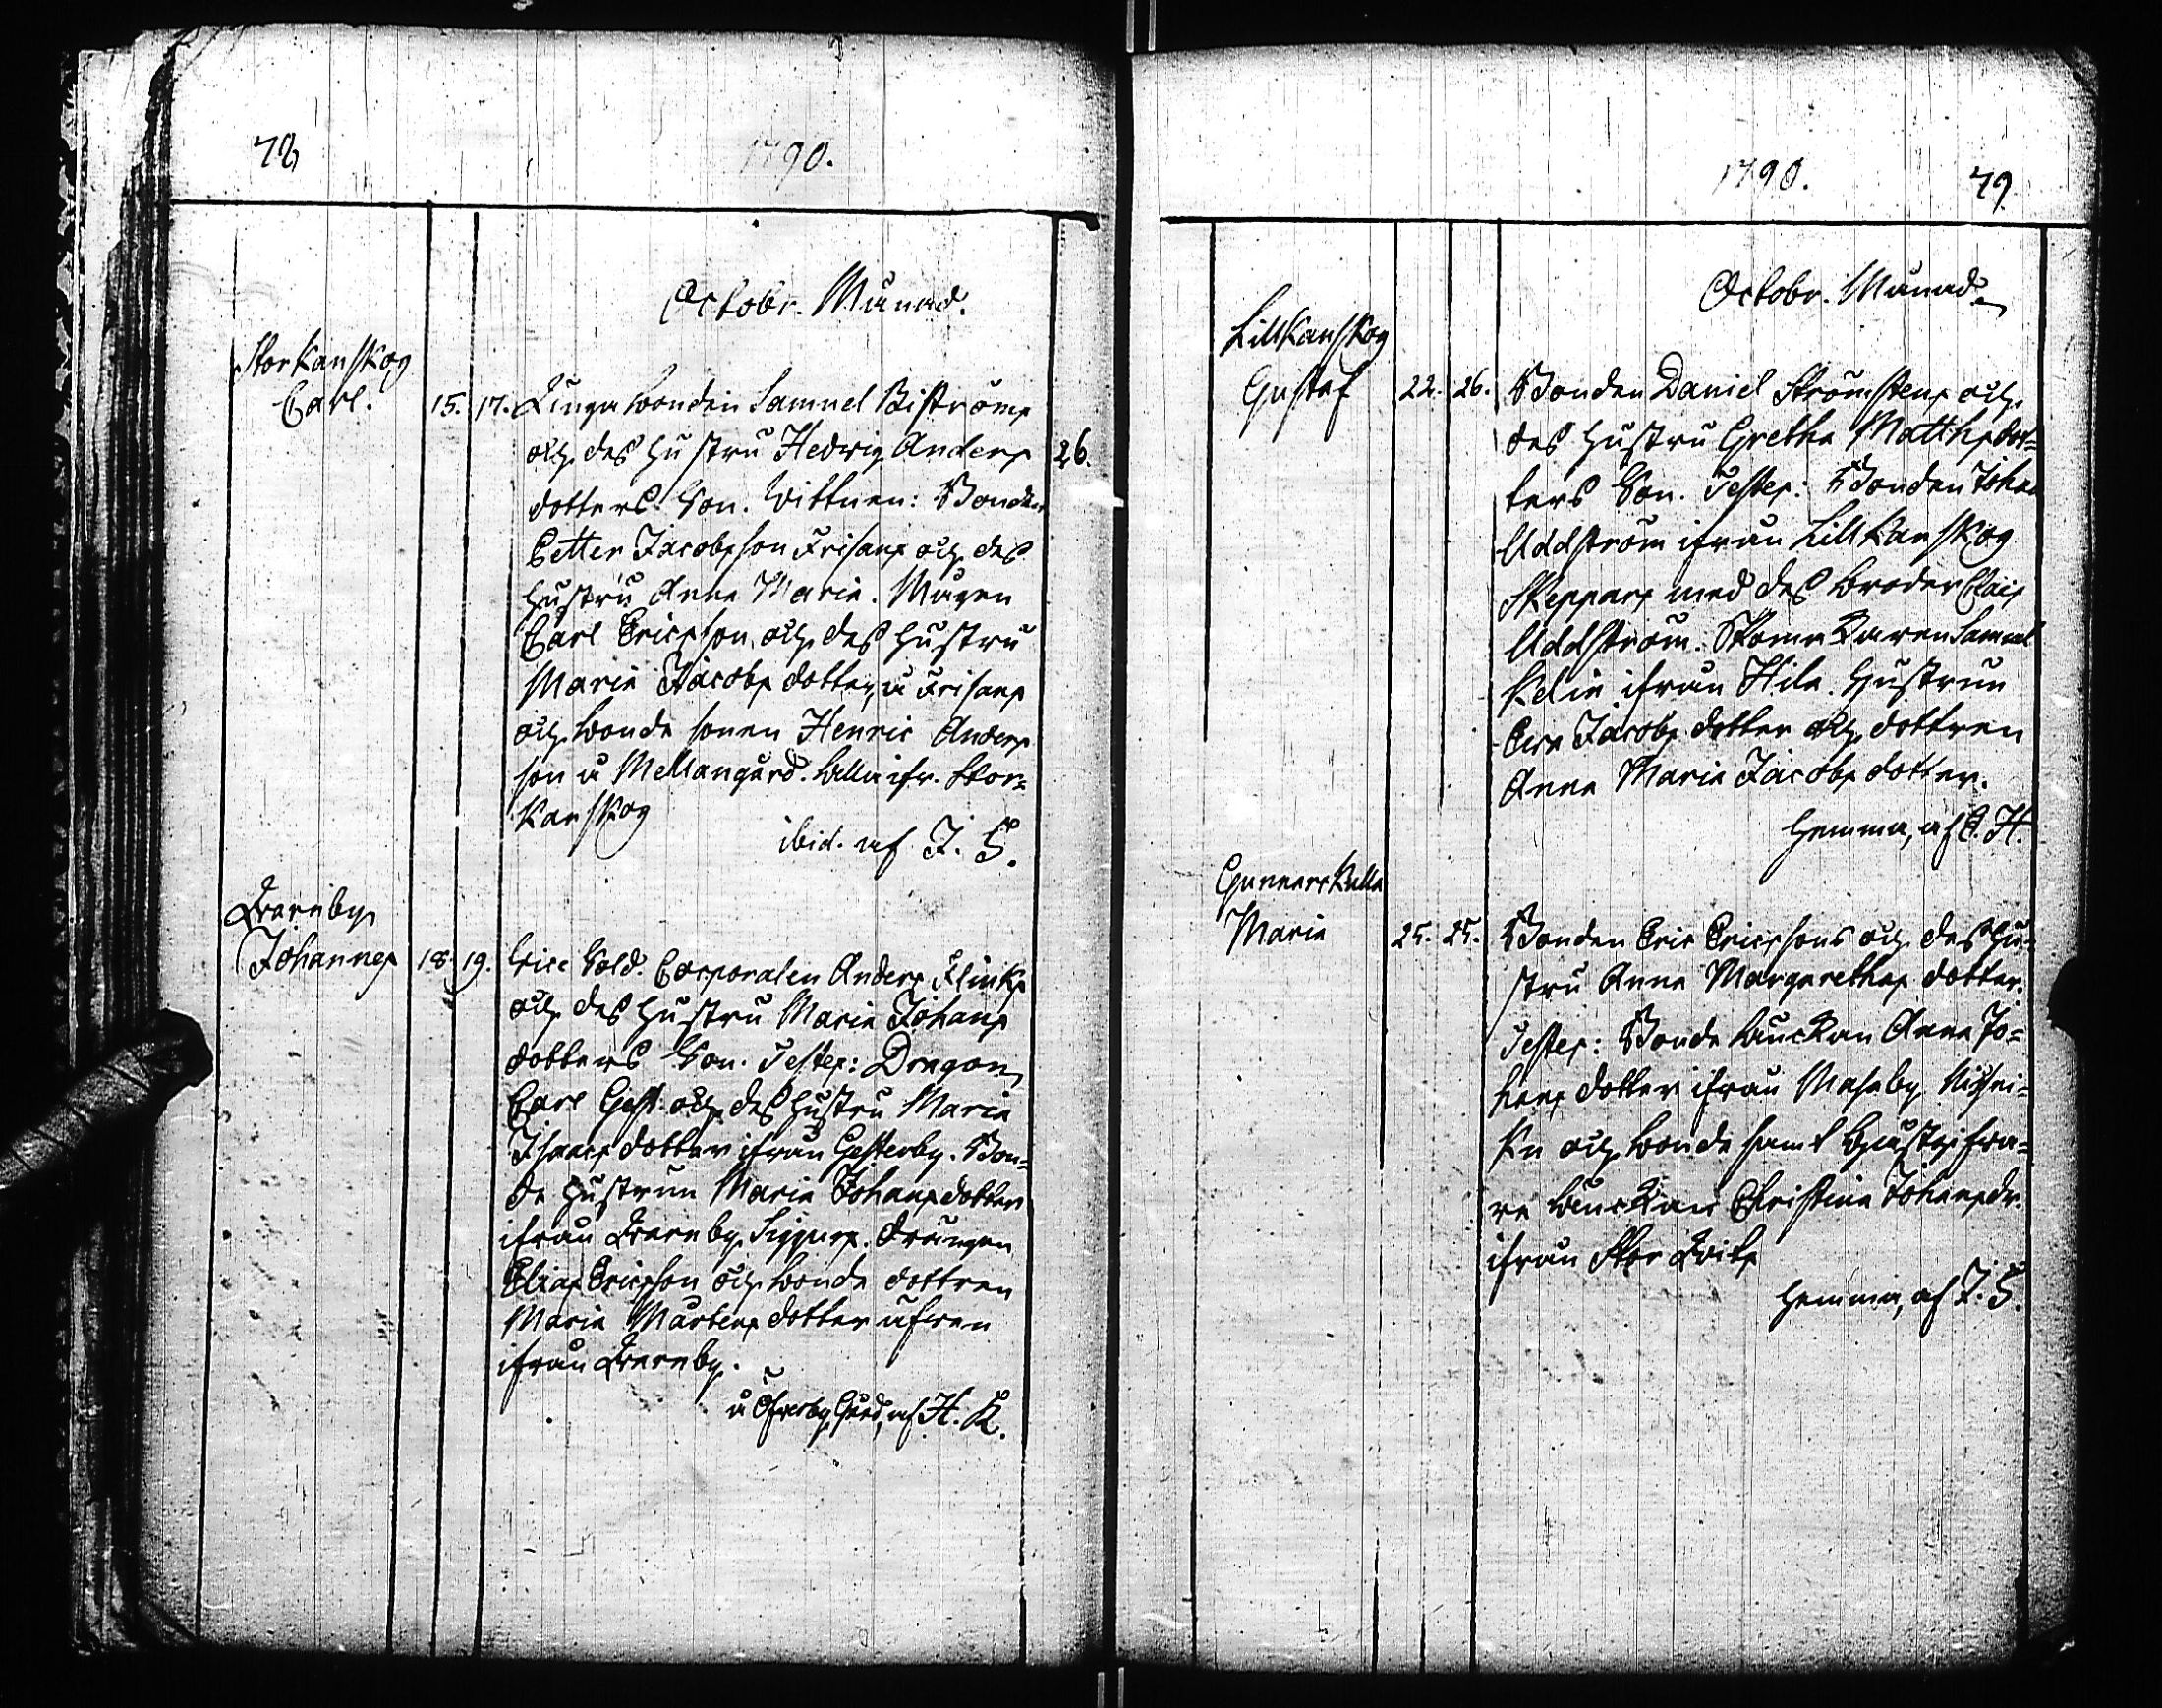 78
1790.
Octobr. Månad.
Storkanskog
Carl. 15. 17. Unga bonden Samuel Biströms
och des hustru Hedvig Anders 26.
dotters Son. Wittnen: Bonden
Petter Jacobsson Frisans och des
hustru Anna Maria. Mågen
Carl Ericsson och des hustru
Maria Jacobs dotter, å Frisans
och bonde sonen Henric Anders
son å Mellangård. alla ifr. Stor=
kanskog
ibid. af J. S.
Qvarnby
Johannes 18. 19. Vice Sold. Corporalen Anders Flinks
och des hustru Maria Johans
dotters Son. Testes: Dragon
Carl Gäst och des hustru Maria
Isaacs dotter ifrån Gesterby. Bon=
de hustrun Maria Johans dotter
ifrån Qvarnby Siggars. drängen
Elias Ericsson och bonde dottren
Maria Mårtens dotter äfven
ifrån Qvarnby.
å Öfverby Gård, af H. K.
1790. 79
Octobr. Månad
Lillkanskog
Gustaf 22. 26. Bonden Daniel Strömstens och
des hustru Gretha Matths dot=
ters Son. Testes: Bonden Johan
Uddström ifrån Lillkanskog
Skeppars med des broder Clais
Uddström. Skomakaren Samuel
Kelin ifrån Hila. Hustrun
Caisa Jacobs dotter och dottren
Anna Maria Jacobs dotter.
hemma, af C. H.
Gunnarskulla
Maria 25. 25. Bonden Eric Ericssons och des hu=
stru Anna Margarethas dotter.
Testes: Bonde Enckan Anna Jo=
hans dotter ifrån Masaby
och bonde samt
re Enckan Christina Johans dr.
ifrån Stor Qvits
hemma, af J. S.